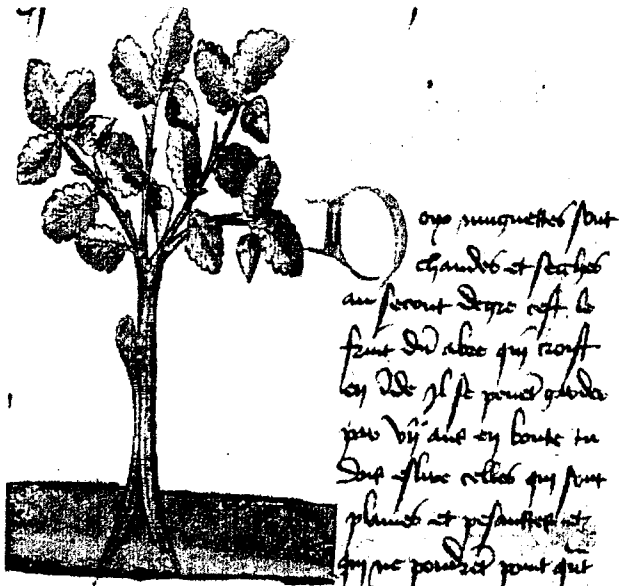 oyx muguettes sont
chaudes et seches
au secont degre cest le
fruit dun abre qui croist
en Inde Il se peuet garder
par vij ans en bonte tu
dois eslire celles qui sont
plaines et pesantes et
qui ne poudret point qnt